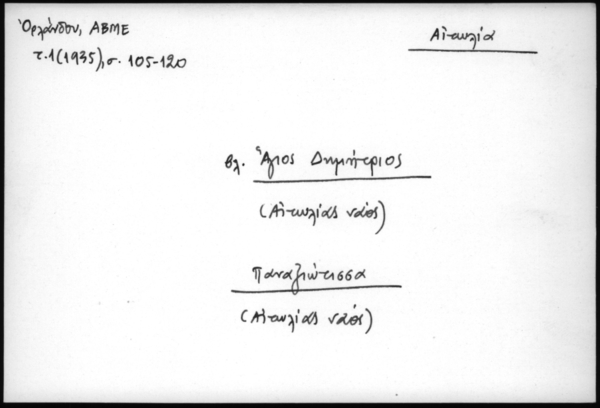 Ὀρλάνδου, ΑΒΜΕ
τ.1(1935),σ. 105-120
Αἰτωλία
βλ. Ἅγιος Δημήτριος
(Αἰτωλίας ναός)
Παναξιώτισσα
(Αἰτωλίας ναός)